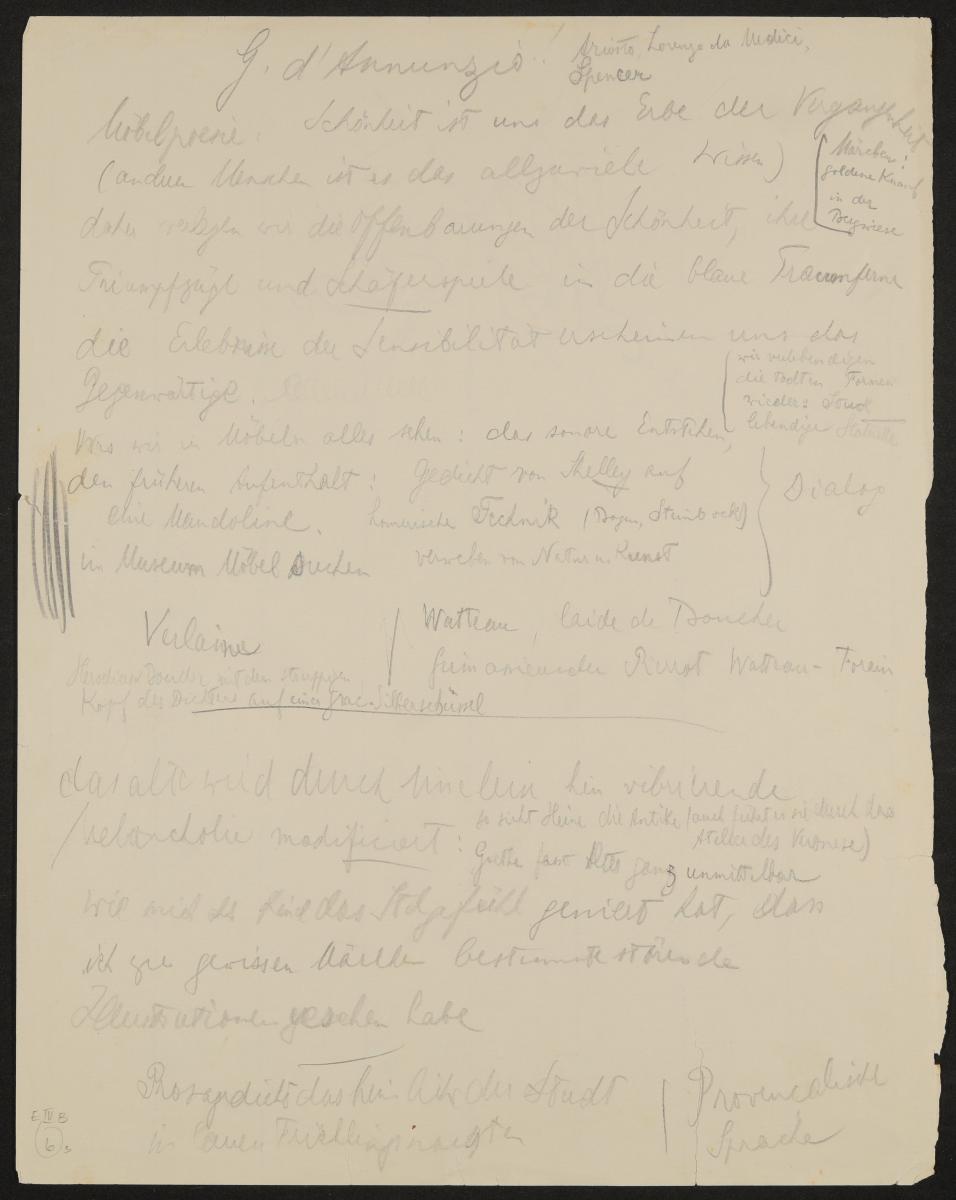 G. d'Annunzio!
Ariosto, Lorenzo da Medici,
Spencer
Möbelpoesie: Schönheit ist uns das Erbe der Vergangenheit
(andren Menschen ist es das allzuviele Wissen)
Märchen:
goldene
in der
Bergwiese
daher verlegen wir die Offenbarungen der Schönheit, ihre
Triumpfzüge und Schäferspiele in die blaue Traumferne
die Erlebnisse der Sensibilität erscheinen uns das
Gegenwärtige.
wir verlebendigen
die todten Formen
wieder:
lebendige Statuette
was wir in Möbeln alles sehen: das sonore Entstehen,
den früheren Aufenthalt: Gedicht von Shelley auf
eine Mandoline. homerische Technik (Bogen, Steinbock)
im Museum Möbel suchen verweben von Natur u. Kunst
Dialog
Verlaine
Watteau, laide de Boucher
Pierrot Watteau-Forain
mit dem struppigen
Kopf des Dichters auf einer Silberschüssel
das alte wird durch hin vibrirende
Melancholie modificiert:
so sieht Heine die Antike (auch sieht er sie durch das
des Veronese)
Goethe fast Alles ganz unmittelbar
wie mich als Kind das geniert hat, dass
ich zu gewissen Märchen bestimmte störende
Illustrationen gesehen habe
Prosagedicht: das der Stadt
in lauen Frühlingsnächten
Provençalische
Sprache
E IV B
6